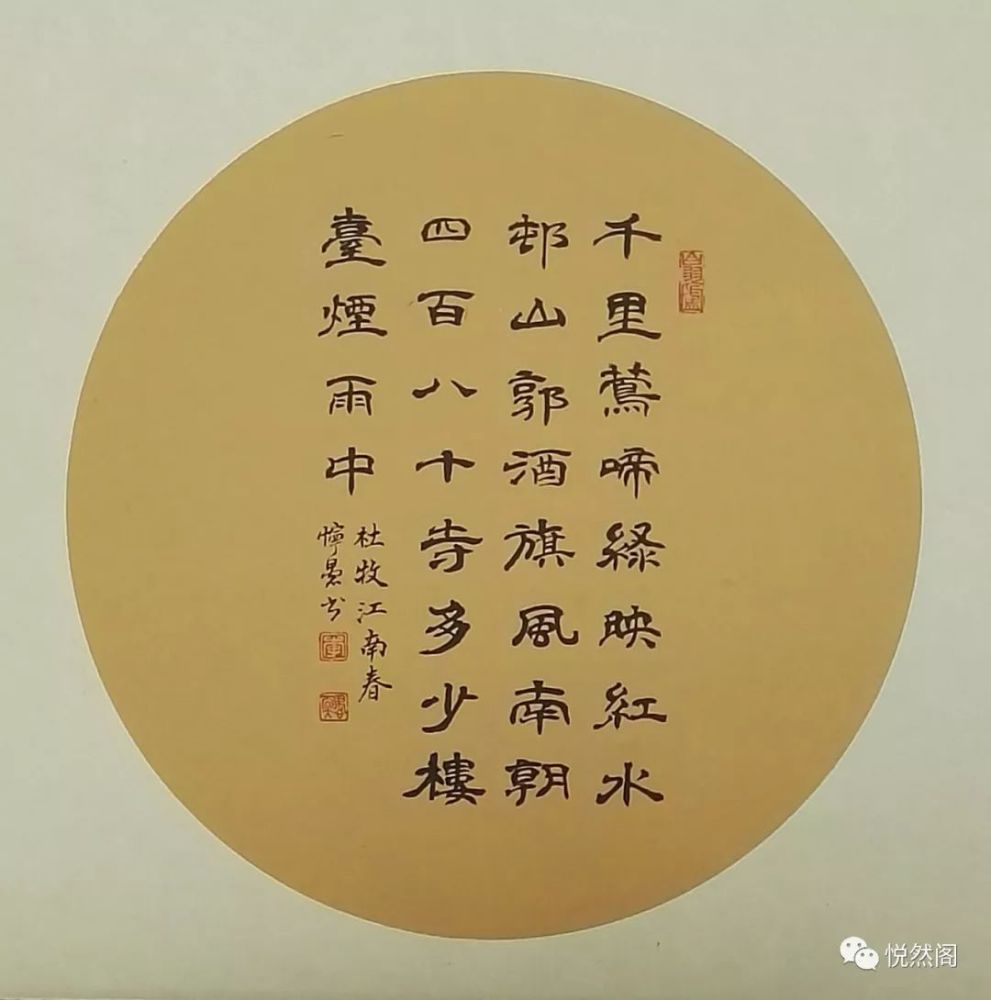 千里鶯啼綠映紅水
邨山郭酒旗風南朝
四百八十寺多少樓
臺煙雨中
杜牧江南春
悦然阁